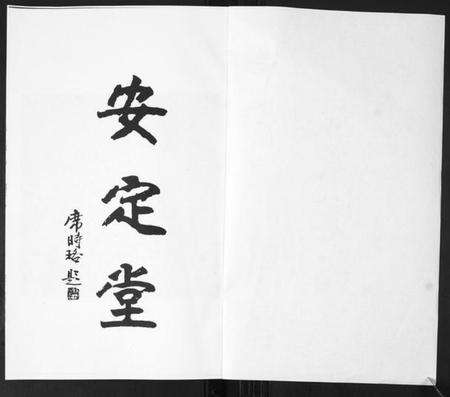 安定堂
席時珞題